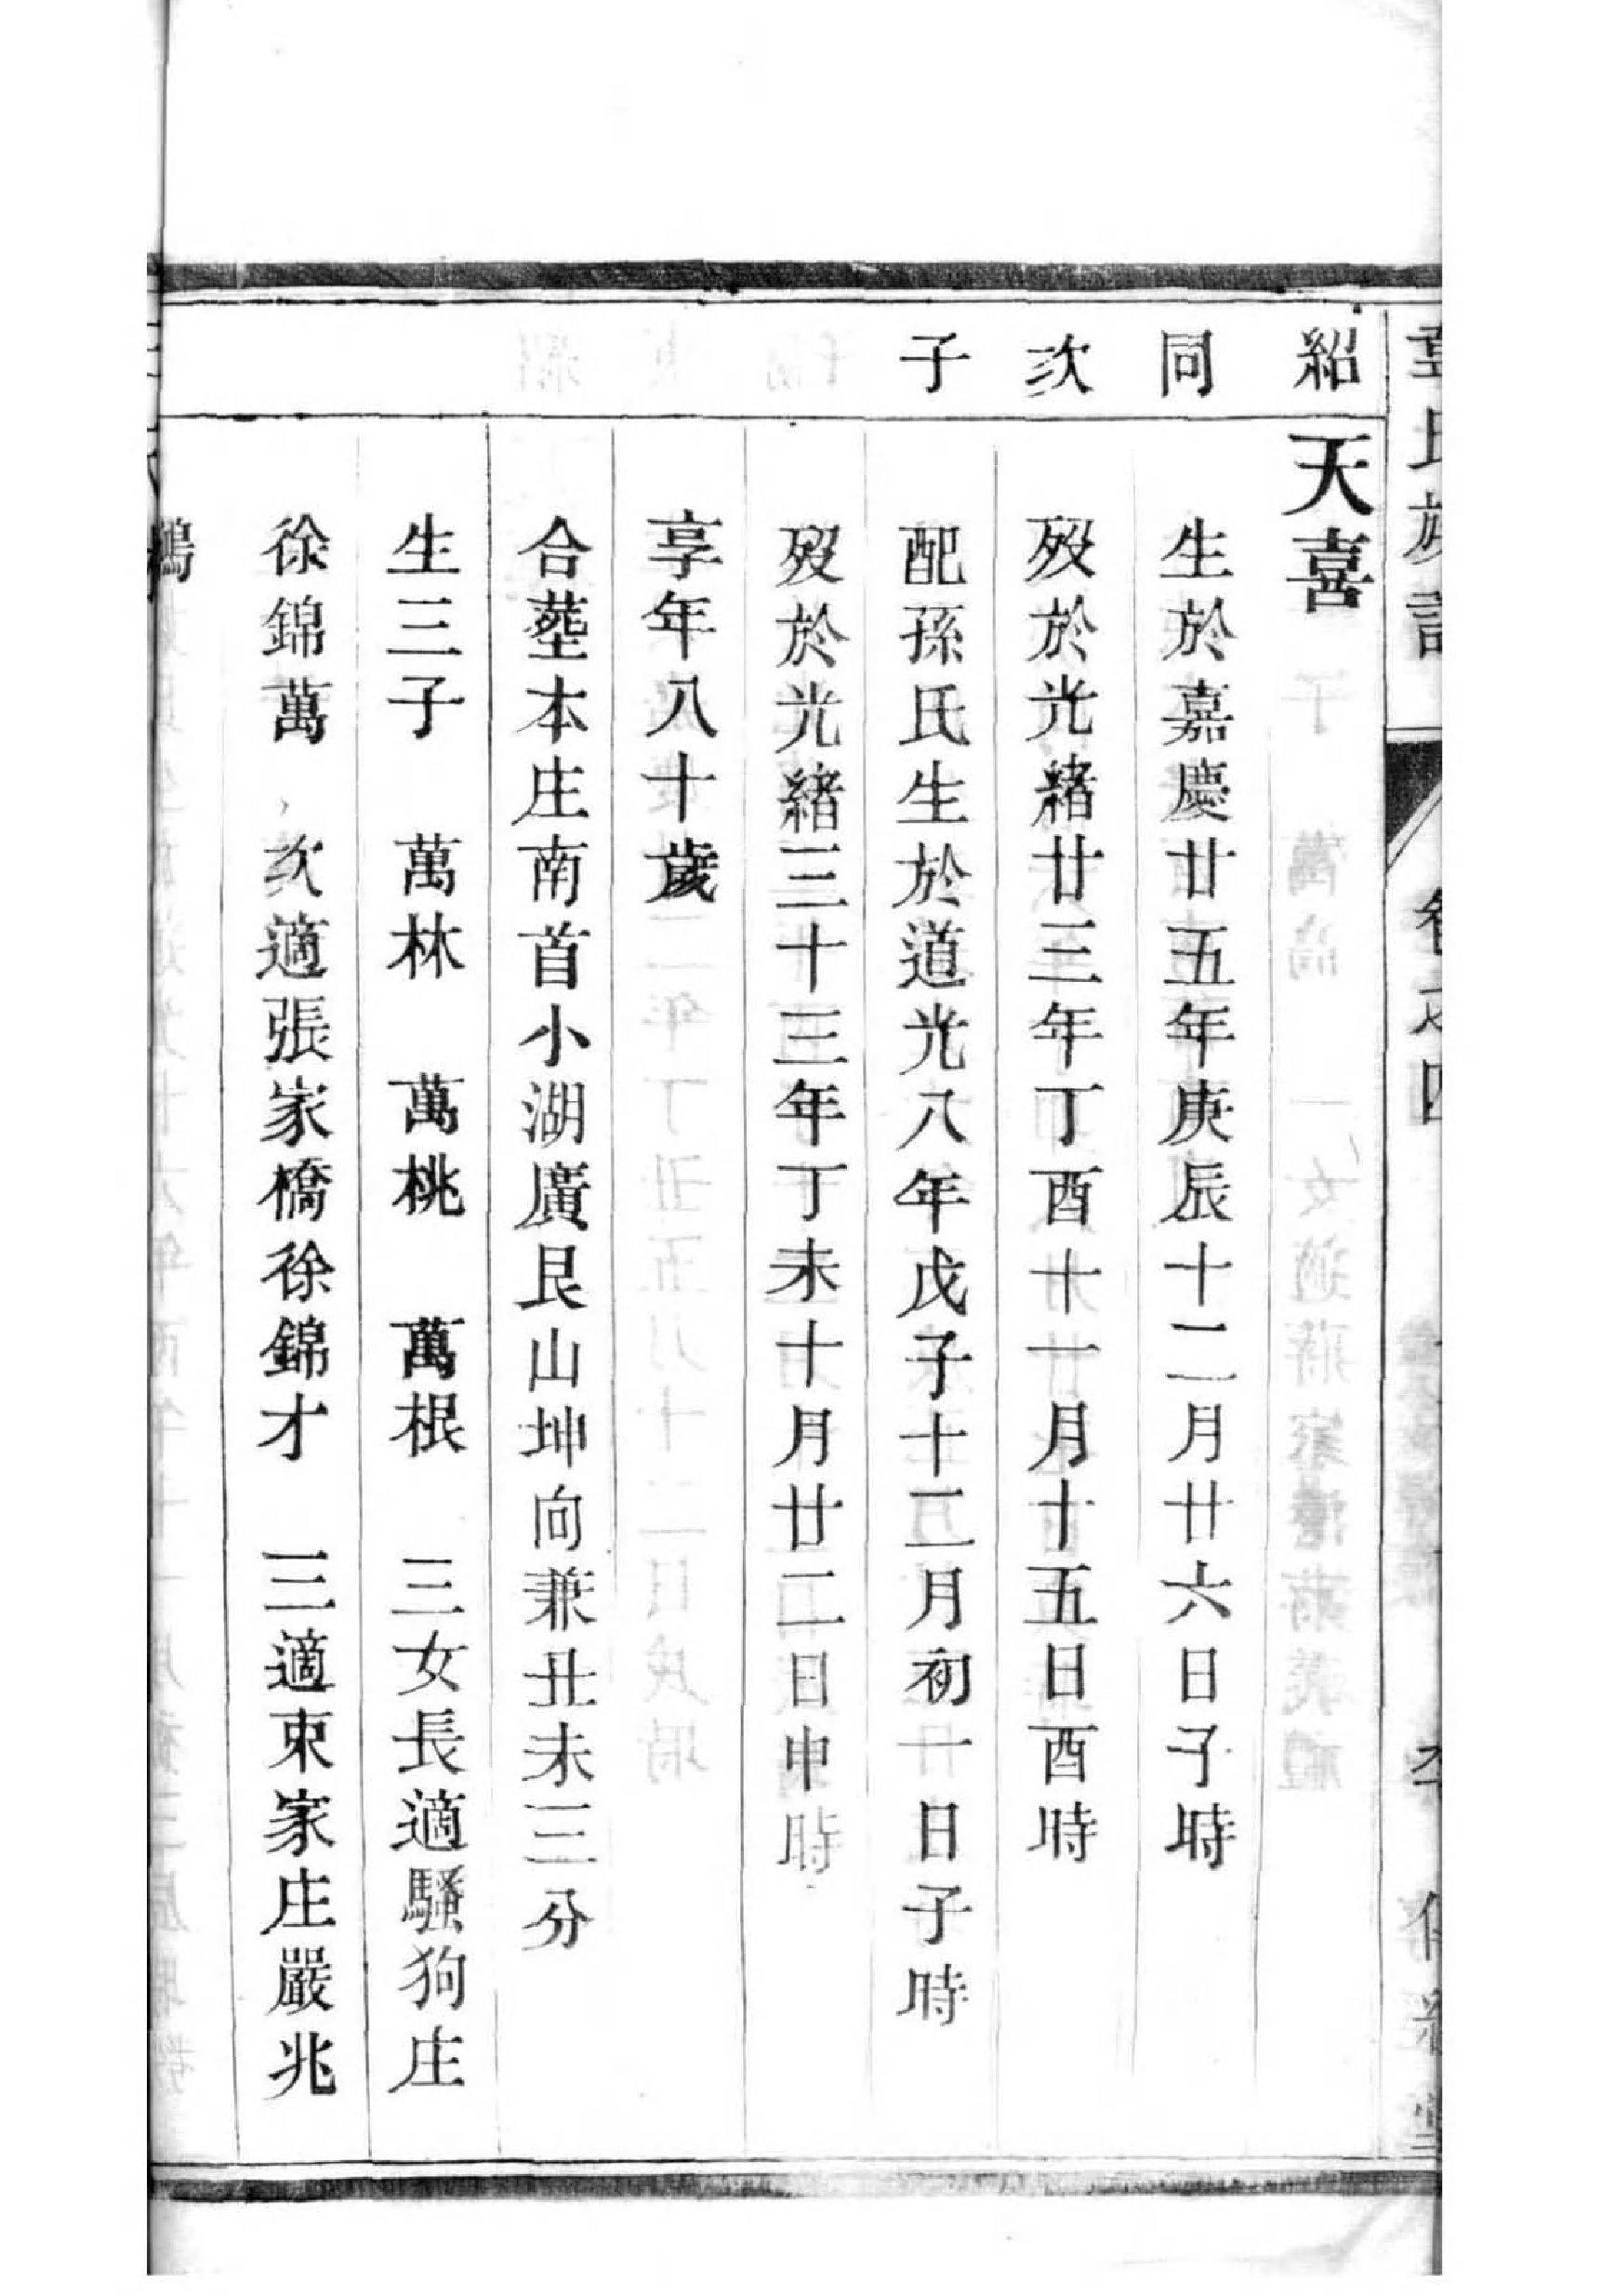 氏族譜 卷之四
紹同次子
天喜
生於嘉慶廿五年庚辰十二月廿六日子時
歿於光緒廿三年丁酉十一月十五日酉時
配孫氏生於道光八年戊子十二月初一日子時
歿於光緒三十三年丁未十月廿二日申時
享年八十歲
合塟本庄南首小湖廣艮山坤向兼丑未三分
生三子 萬林 萬桃 萬根 三女長適騷狗庄
徐錦萬 次適張家橋徐錦才 三適束家庄嚴兆